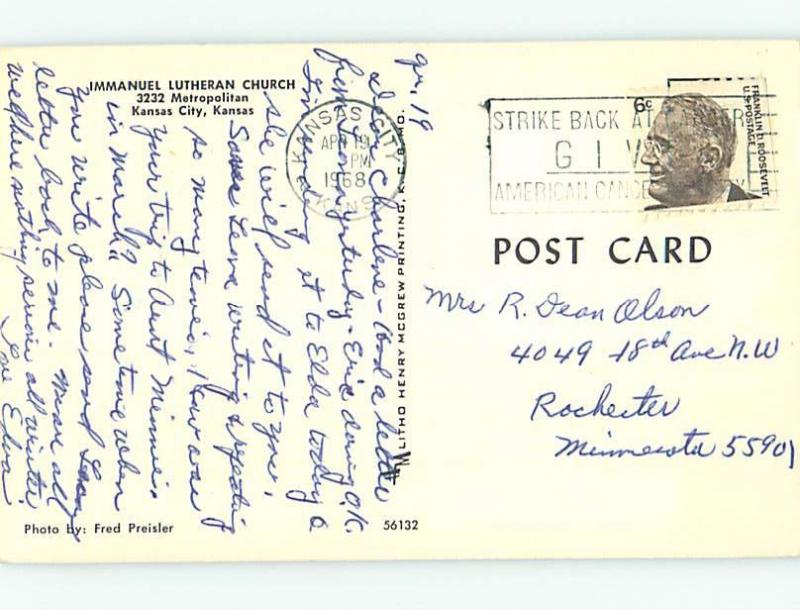 IMMANUEL LUTHERAN CHURCH
3232 Metropolitan
Kansas City, Kansas
Ap. 19
Dear Charlene - Had a letter
from Leona yesterday - Eric doing O.K.
I'm sending it to Elda today &
she will send it to you.
Saves Leona writing & repeating
so many times. How was
your trip to Aunt Minnie's
in March? Sometime when
you write please send Leona's
letter back to me. Mean all
well here nothing serious all winter
Love Edna
Photo by: Fred Preisler
56132
LITHO HENRY MCGREW PRINTING, K. C. 8, MO.
KANSAS CITY
APR 19
PM
1968
KANS
STRIKE BACK AT CANCER
GIVE
AMERICAN CANCER
6c
FRANKLIN D. ROOSEVELT
U.S. POSTAGE
POST CARD
Mrs R. Dean Olson
4049 18th Ave N.W
Rochester
Minnesota 55901